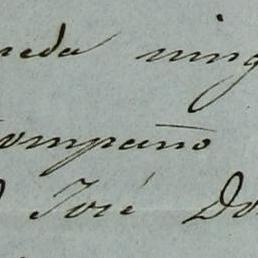 reda ning
compaño
José Do